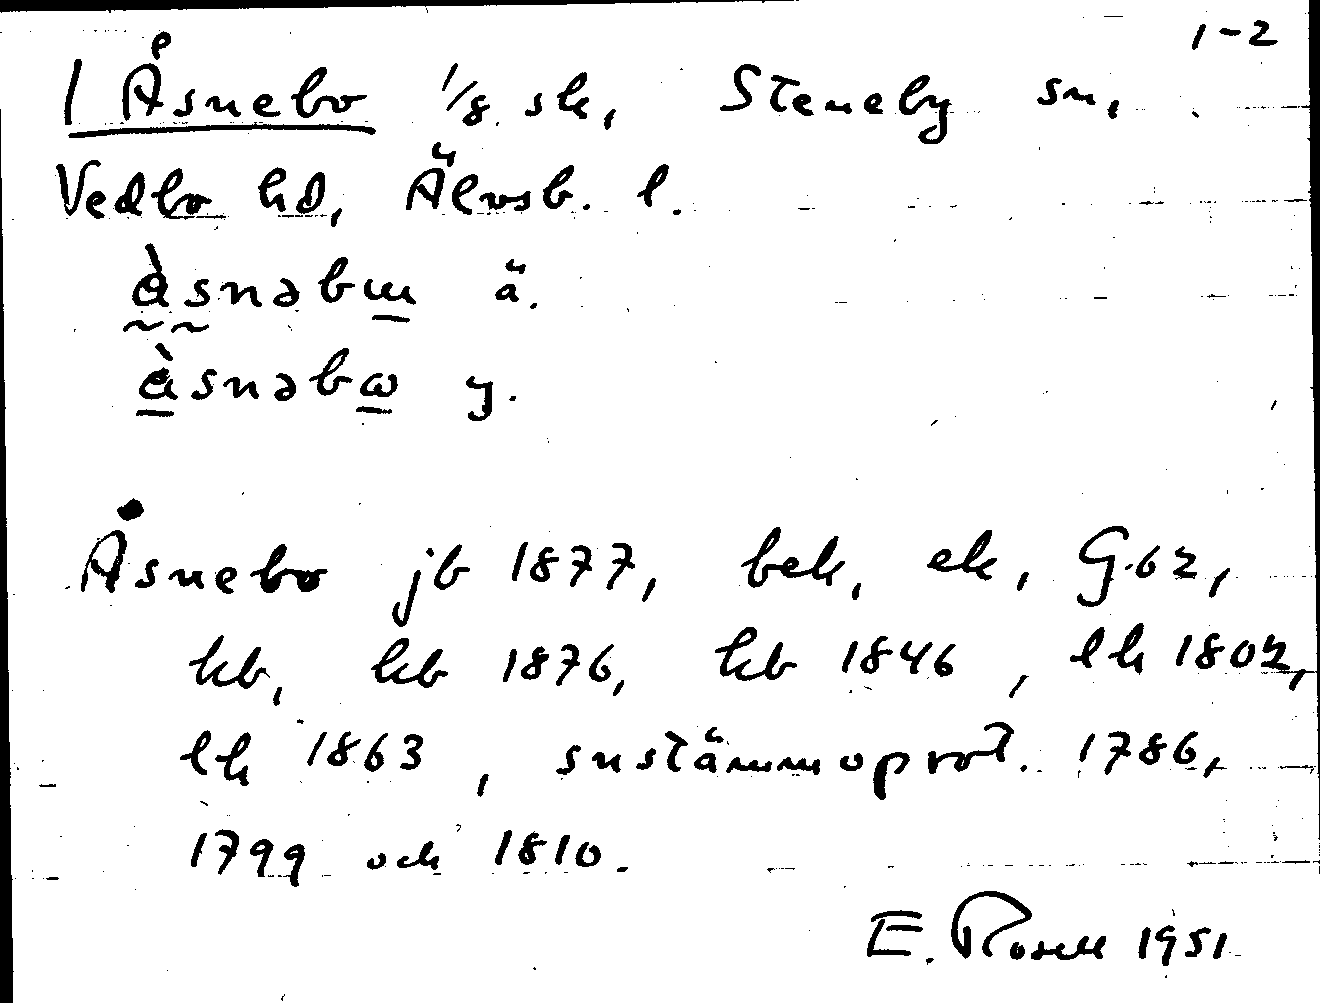 1-2
1 Åsnebo 1/8 sk, Steneby sn,
Vedbo hd, Älvsb. l.
å̀snəbɯ ä.
å̀snəbω y.
Åsnebo jb 1877, bek, ek, G.62,
kb, kb 1876, kb 1846, lh 1802,
lh 1863, snstämmoprot. 1786,
1799 och 1810.
E. Rosell 1951